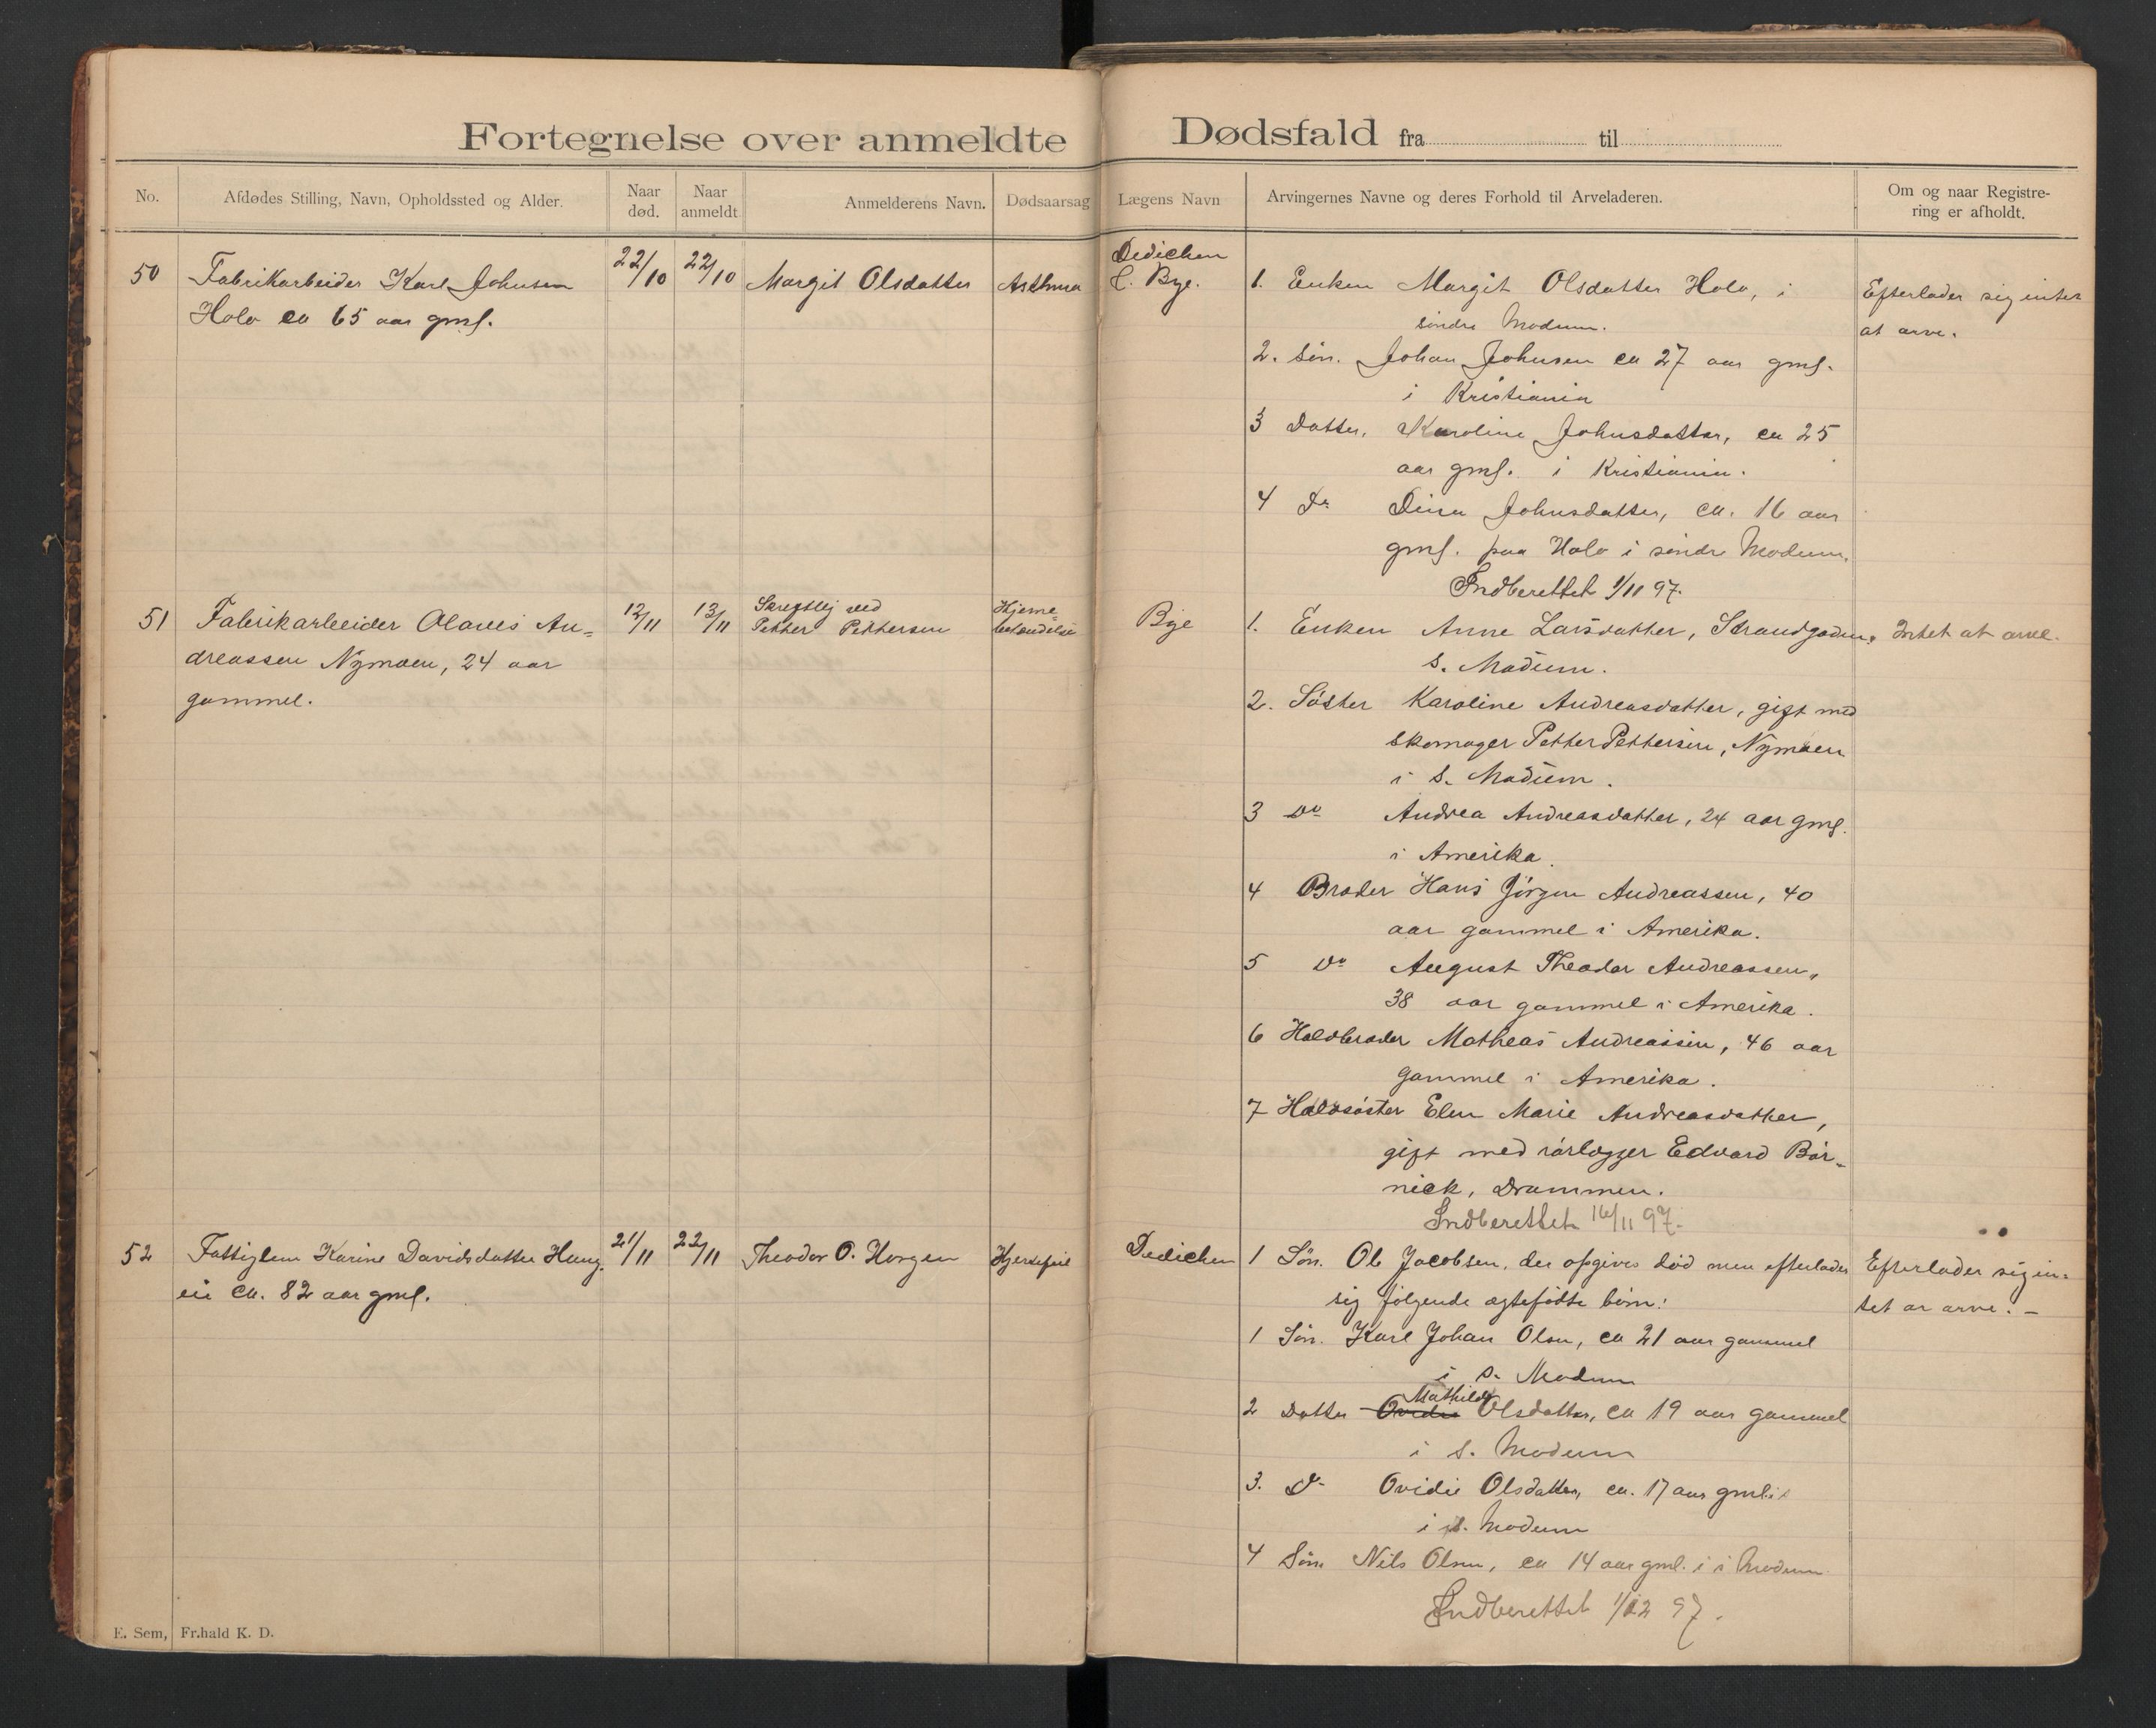 Fortegnelse over anmeldte Dødsfald fra til
No. Afdødes Stilling, Navn, Opholdssted og Alder. Naar død. Naar anmeldt Anmelderens Navn. Dødsaarsag Lægens Navn Arvingernes Navne og deres Forhold til Arveladeren. Om og naar Registrering er afholdt.
50 Fabrikarbeider Karl Johnsen 22/10 22/10 Margit Olsdatter Asthma
Holo ca 65 aar gml.
51 Fabrikarbeider Olaves An=
dreassen Nymoen, 24 aar
gammel.
12/11 13/11
Petter Pettersen
Hjerne
betændelse
52 Fattiglem Karine Davidsdatter Haug
eie ca. 82 aar gml.
21/11 22/11 Theodor O. Horgen Hjertefeil
E. Sem, Fr.hald K. D.
Dedichen
C. Bye.
1. Enken Margit Olsdatter Holo, i
søndre Modum.
2. Søn. Johan Johnsen ca 27 aar gml.
i Kristiania
3 Datter, Karoline Johnsdatter, ca 25
aar gml. i Kristiania.
4 Do Dina Johnsdatter, ca. 16 aar
gml. paa Holo i søndre Modum.
Indberettet 1/11 97.
Efterlader sig intet
at arve.
Bye
1. Enken Anne Larsdatter, Strandgaden,
s. Modum.
Intet at arve.
2. Søster Karoline Andreasdatter, gift med
skomager Petter Pettersen, Nymoen
i s. Modum.
3 Do Andrea Andreasdatter, 24 aar gml.
i Amerika.
4 Broder Hans Jørgen Andreassen, 40
aar gammel i Amerika.
5 Do August Theodor Andreassen,
38 aar gammel i Amerika.
6 Halvbroder Matheas Andreassen, 46 aar
gammel i Amerika.
7 Halvsøster Elen Marie Andreasdatter,
gift med rørlægger Edvard Bør=
nick, Drammen.
Indberettet 16/11 97.
Dedichen
1 Søn. Ole Jacobsen, der opgives død men efterlader
sig følgende ægtefødte børn:
Efterlader sig in=
tet at arve. –
1 Søn. Karl Johan Olsen, ca 21 aar gammel
i s. Modum
Mathilde
2 Datter Ovidie Olsdatter, ca 19 aar gammel
i s. Modum
3. Do Ovidie Olsdatter, ca. 17 aar gml.
i s. Modum
4 Søn Nils Olsen, ca 14 aar gml. i s Modum
Indberettet 1/12 97.